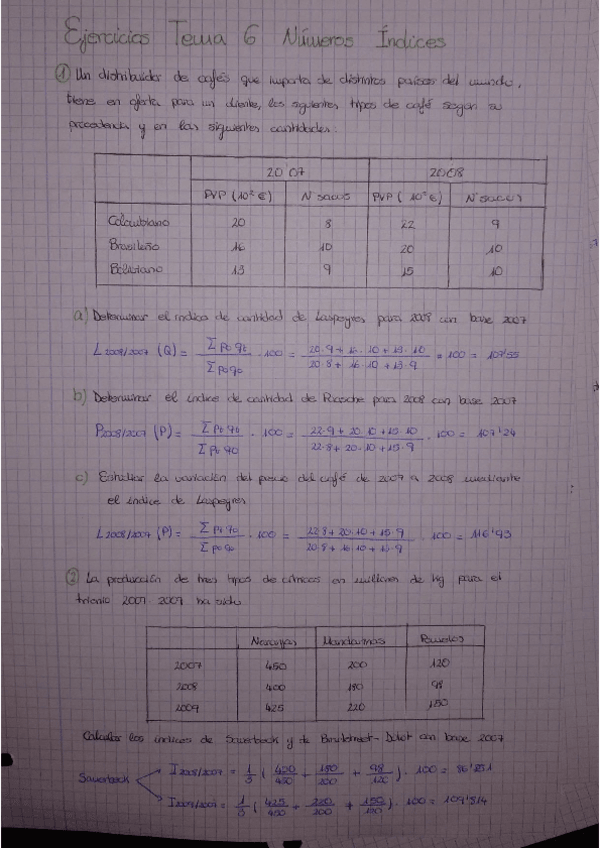 Ejercicios Tema 6 Números Índices
① Un distribuidor de cafés que importa de distintos países del mundo,
tiene en oferta para un cliente, los siguientes tipos de café según su
procedencia y en las siguientes cantidades:
2007 2008
PVP (10² €) Nº sacos PVP (10² €) Nº sacos
Colombiano 20 8 22 9
Brasileño 16 10 20 10
Boliviano 13 9 15 10
a) Determinar el índice de cantidad de Laspeyres para 2008 con base 2007
L 2008/2007 (Q) = Σ p0 qt / Σ p0 q0 · 100 = 20·9 + 16·10 + 13·10 / 20·8 + 16·10 + 13·9 · 100 = 107'55
b) Determinar el índice de cantidad de Paasche para 2008 con base 2007
P 2008/2007 (P) = Σ pt qt / Σ pt q0 · 100 = 22·9 + 20·10 + 15·10 / 22·8 + 20·10 + 15·9 · 100 = 107'24
c) Estudiar la variación del precio del café de 2007 a 2008 mediante
el índice de Laspeyres
L 2008/2007 (P) = Σ pt q0 / Σ p0 q0 · 100 = 22·8 + 20·10 + 15·9 / 20·8 + 16·10 + 13·9 · 100 = 116'93
② La producción de tres tipos de cítricos en millones de kg para el
trienio 2007-2009 ha sido
Naranjas Mandarinas Pomelos
2007 450 200 120
2008 400 180 98
2009 425 220 150
Calcular los índices de Sauerbeck y de Bradstreet-Dûtot con base 2007
Sauerbeck
I 2008/2007 = 1/3 ( 400/450 + 180/200 + 98/120 ) · 100 = 86'851
I 2009/2007 = 1/3 ( 425/450 + 220/200 + 150/120 ) · 100 = 109'814